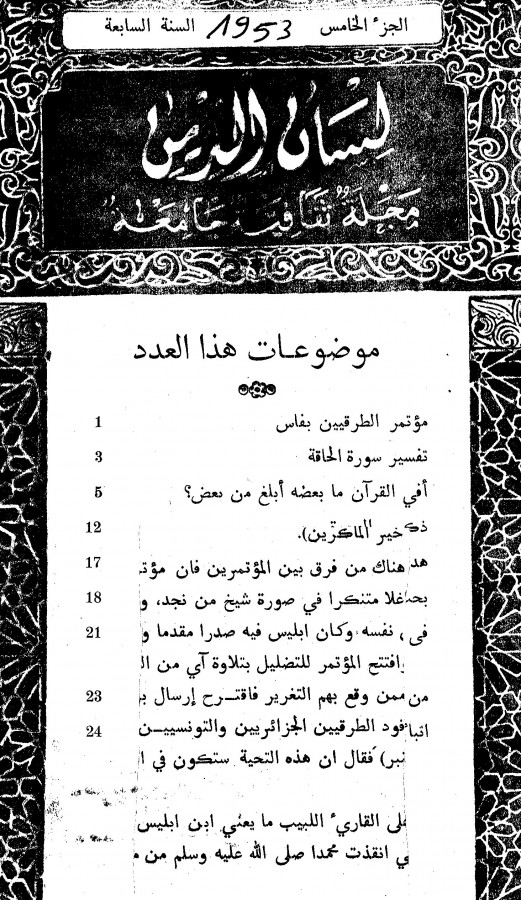 الجزء الخامس 1953 السنة السابعة
لسان الدين
مجلة ثقافية جامعة
موضوعات هذا العدد
مؤتمر الطرقيين بفاس 1
تفسير سورة الحاقة 3
أفي القرآن ما بعضه أبلغ من بعض؟ 5
ذ خير الماكرين). 12
هد هناك من فرق بين المؤتمرين فان مؤتم 17
بحـ غلا متنكرا في صورة شيخ من نجد، و 18
في نفسه وكان ابليس فيه صدرا مقدما و 21
افتتح المؤتمر للتضليل بتلاوة آي من ال
من ممن وقع بهم التغرير فاقترح إرسال بر 23
اتبا فود الطرقيين الجزائريين والتونسيين 24
نبر) فقال ان هذه التحية ستكون في ا
على القاريء اللبيب ما يعني ابن ابليس
ي انقذت محمدا صلى الله عليه وسلم من م